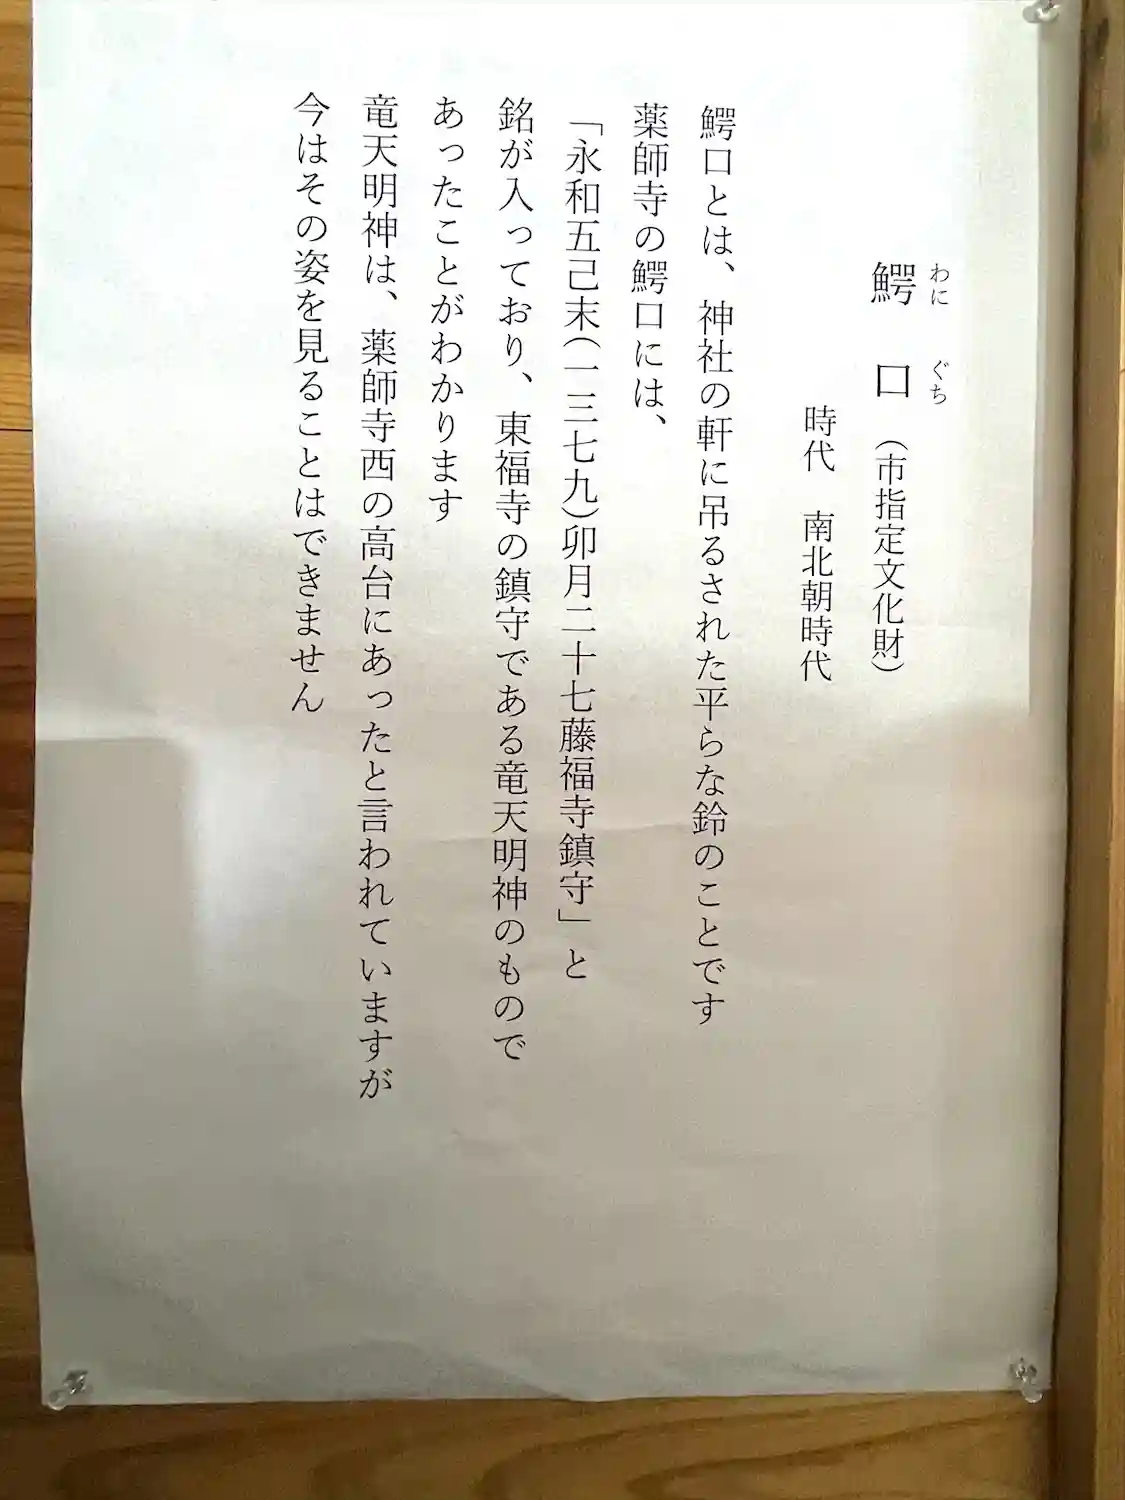 鰐口（市指定文化財）
わに ぐち
時代　南北朝時代
鰐口とは、神社の軒に吊るされた平らな鈴のことです
薬師寺の鰐口には、
「永和五己末(一三七九)卯月二十七藤福寺鎮守」と
銘が入っており、東福寺の鎮守である竜天明神のもので
あったことがわかります
竜天明神は、薬師寺西の高台にあったと言われていますが
今はその姿を見ることはできません